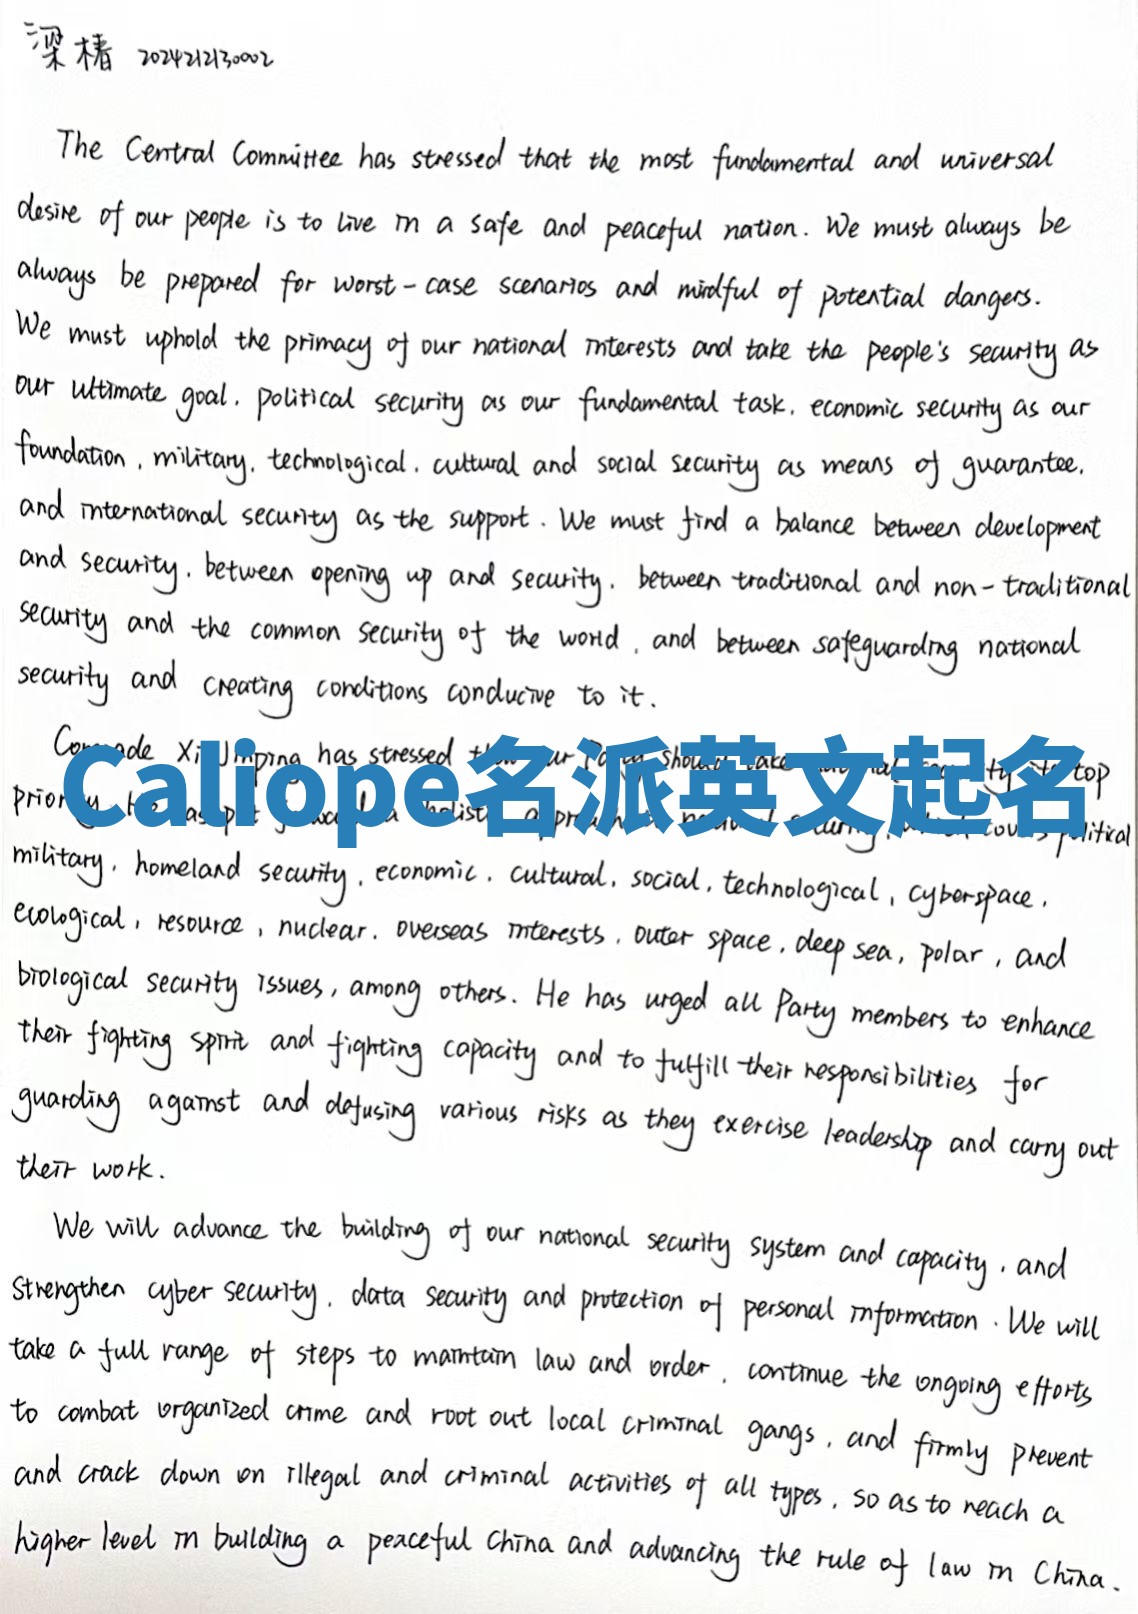 梁椿 2024212130002
The Central Committee has stressed that the most fundamental and universal
desire of our people is to live in a safe and peaceful nation. We must always be
always be prepared for worst-case scenarios and mindful of potential dangers.
We must uphold the primacy of our national interests and take the people's security as
our ultimate goal, political security as our fundamental task, economic security as our
foundation, military, technological, cultural and social security as means of guarantee,
and international security as the support. We must find a balance between development
and security, between opening up and security, between traditional and non-traditional
security and the common security of the world, and between safeguarding national
security and creating conditions conducive to it.
Comrade Xi Jinping has stressed our Party should take top
Caliope名派英文起名
priority political
military, homeland security, economic, cultural, social, technological, cyberspace,
ecological, resource, nuclear, overseas interests, outer space, deep sea, polar, and
biological security issues, among others. He has urged all Party members to enhance
their fighting spirit and fighting capacity and to fulfill their responsibilities for
guarding against and defusing various risks as they exercise leadership and carry out
their work.
We will advance the building of our national security system and capacity, and
strengthen cyber security, data security and protection of personal information. We will
take a full range of steps to maintain law and order, continue the ongoing efforts
to combat organized crime and root out local criminal gangs, and firmly prevent
and crack down on illegal and criminal activities of all types, so as to reach a
higher level in building a peaceful China and advancing the rule of law in China.